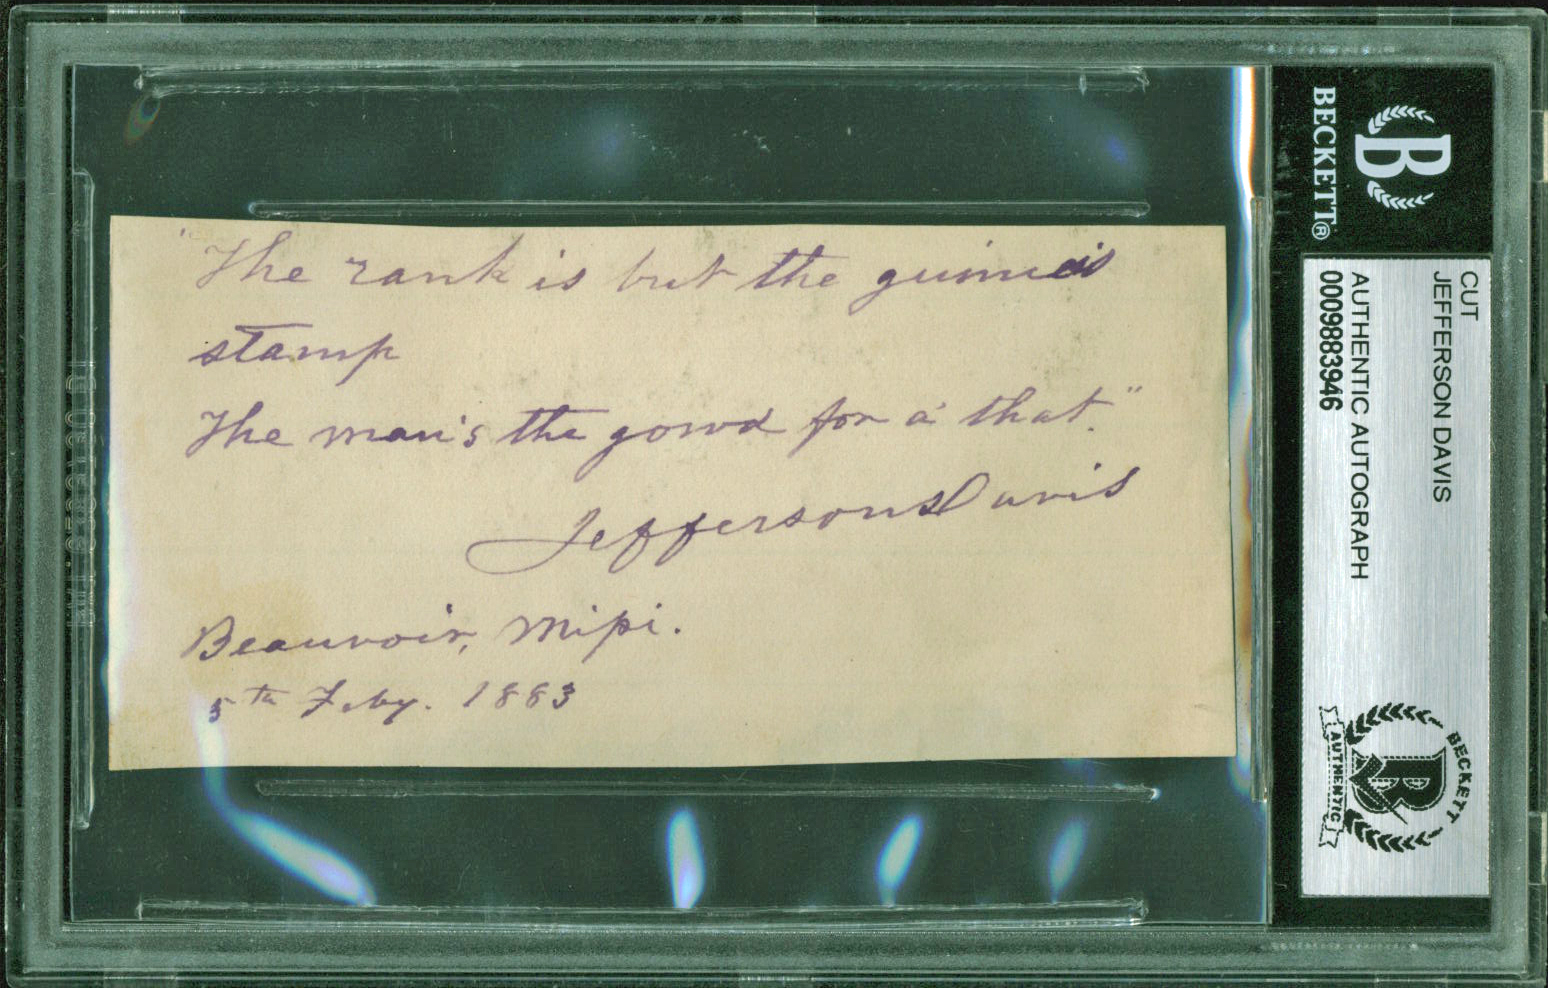 "The rank is but the guinea's
stamp
The man's the gowd for a' that."
Jefferson Davis
Beauvoir, Mipi.
5th Feby. 1883
BECKETT®
B
CUT
JEFFERSON DAVIS
AUTHENTIC AUTOGRAPH
0009883946
BECKETT
B
AUTHENTIC